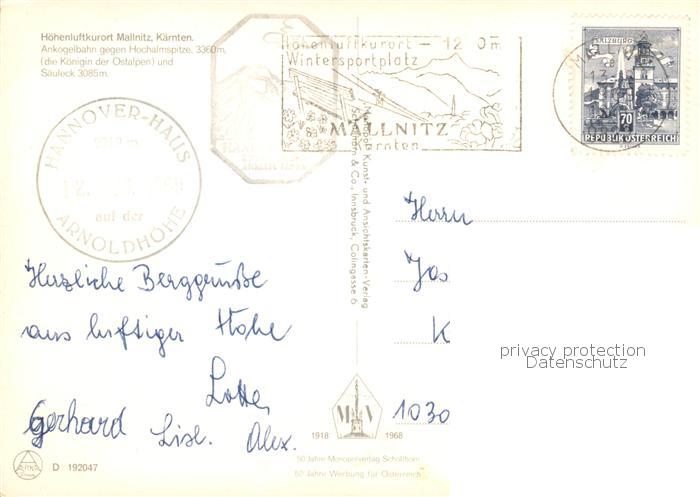 Höhenluftkurort Mallnitz, Kärnten.
Ankogelbahn gegen Hochalmspitze, 3360m,
(die Königin der Ostalpen) und
Säuleck 3085m.
Höhenluftkurort - 12 0m
Wintersportplatz
MALLNITZ
Kärnten
SALZBURG
70
REPUBLIK ÖSTERREICH
HANNOVER-HAUS
auf der
ARNOLDHÖHE
Kunst- und Ansichtskarten-Verlag
& Co., Innsbruck, Colingasse 6
Herzliche Berggrüße
aus luftiger Höhe
Lotte,
Gerhard Lisl. Alex.
Herrn
Jos
K
1030
privacy protection
Datenschutz
M V
1918 1968
50 Jahre Monopolverlag Schöllhorn
50 Jahre Werbung für Österreich
D 192047